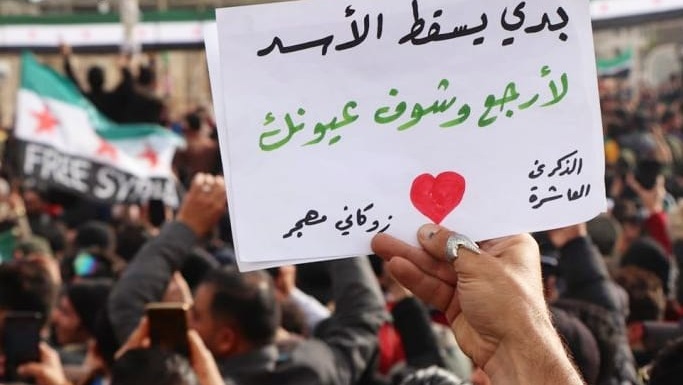 جدي يسقط الأسد
لأرجع وشوف عيونك
الذكرى
العاشرة
زوكاني مهجر
FREE SYRIA